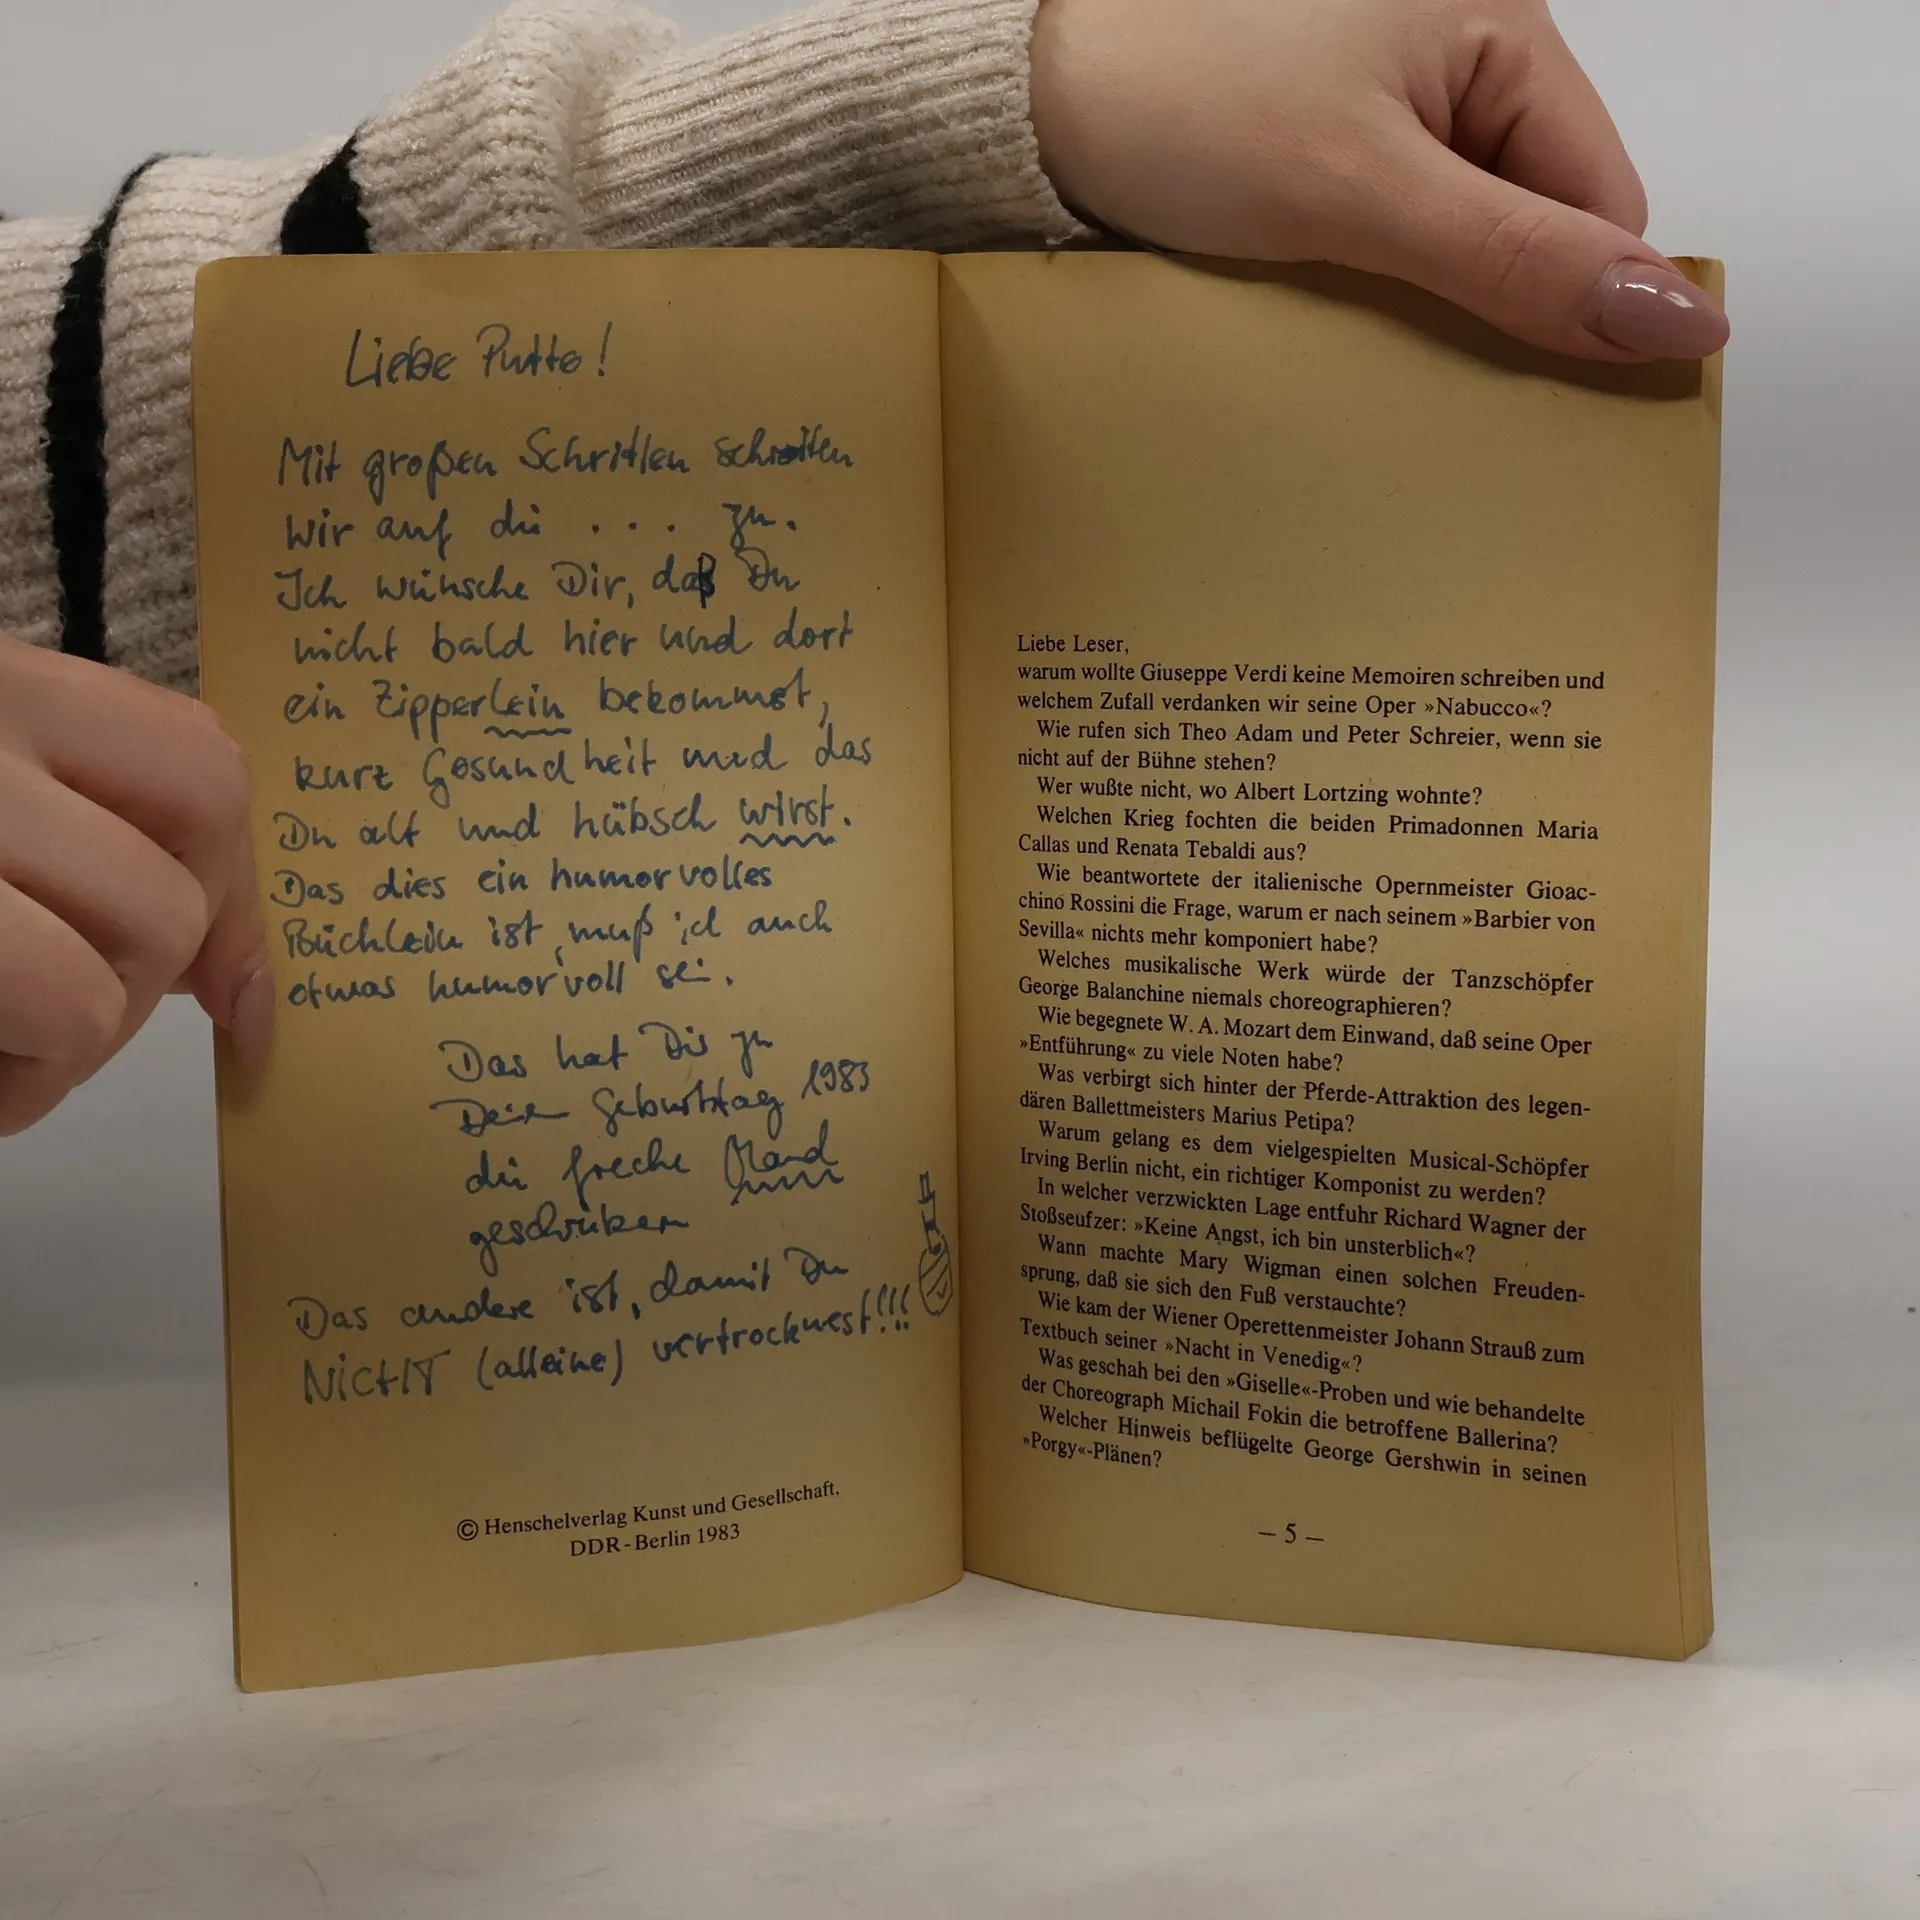 Liebe Putte!
Mit großen Schritten schreiten
wir auf die . . . zu.
Ich wünsche Dir, daß Du
nicht bald hier und dort
ein Zipperlein bekommst,
kurz Gesundheit und das
Du alt und hübsch wirst.
Das dies ein humorvolles
Büchlein ist, muß ich auch
etwas humorvoll sei.
Das hat Dir zu
Dein Geburtstag 1983
die freche
geschrieben
Das andere ist, damit Du
NICHT (alleine) vertrocknest!!!
© Henschelverlag Kunst und Gesellschaft,
DDR-Berlin 1983
Liebe Leser,
warum wollte Giuseppe Verdi keine Memoiren schreiben und
welchem Zufall verdanken wir seine Oper »Nabucco«?
Wie rufen sich Theo Adam und Peter Schreier, wenn sie
nicht auf der Bühne stehen?
Wer wußte nicht, wo Albert Lortzing wohnte?
Welchen Krieg fochten die beiden Primadonnen Maria
Callas und Renata Tebaldi aus?
Wie beantwortete der italienische Opernmeister Gioac-
chino Rossini die Frage, warum er nach seinem »Barbier von
Sevilla« nichts mehr komponiert habe?
Welches musikalische Werk würde der Tanzschöpfer
George Balanchine niemals choreographieren?
Wie begegnete W. A. Mozart dem Einwand, daß seine Oper
»Entführung« zu viele Noten habe?
Was verbirgt sich hinter der Pferde-Attraktion des legen-
dären Ballettmeisters Marius Petipa?
Warum gelang es dem vielgespielten Musical-Schöpfer
Irving Berlin nicht, ein richtiger Komponist zu werden?
In welcher verzwickten Lage entfuhr Richard Wagner der
Stoßseufzer: »Keine Angst, ich bin unsterblich«?
Wann machte Mary Wigman einen solchen Freuden-
sprung, daß sie sich den Fuß verstauchte?
Wie kam der Wiener Operettenmeister Johann Strauß zum
Textbuch seiner »Nacht in Venedig«?
Was geschah bei den »Giselle«-Proben und wie behandelte
der Choreograph Michail Fokin die betroffene Ballerina?
Welcher Hinweis beflügelte George Gershwin in seinen
»Porgy«-Plänen?
– 5 –